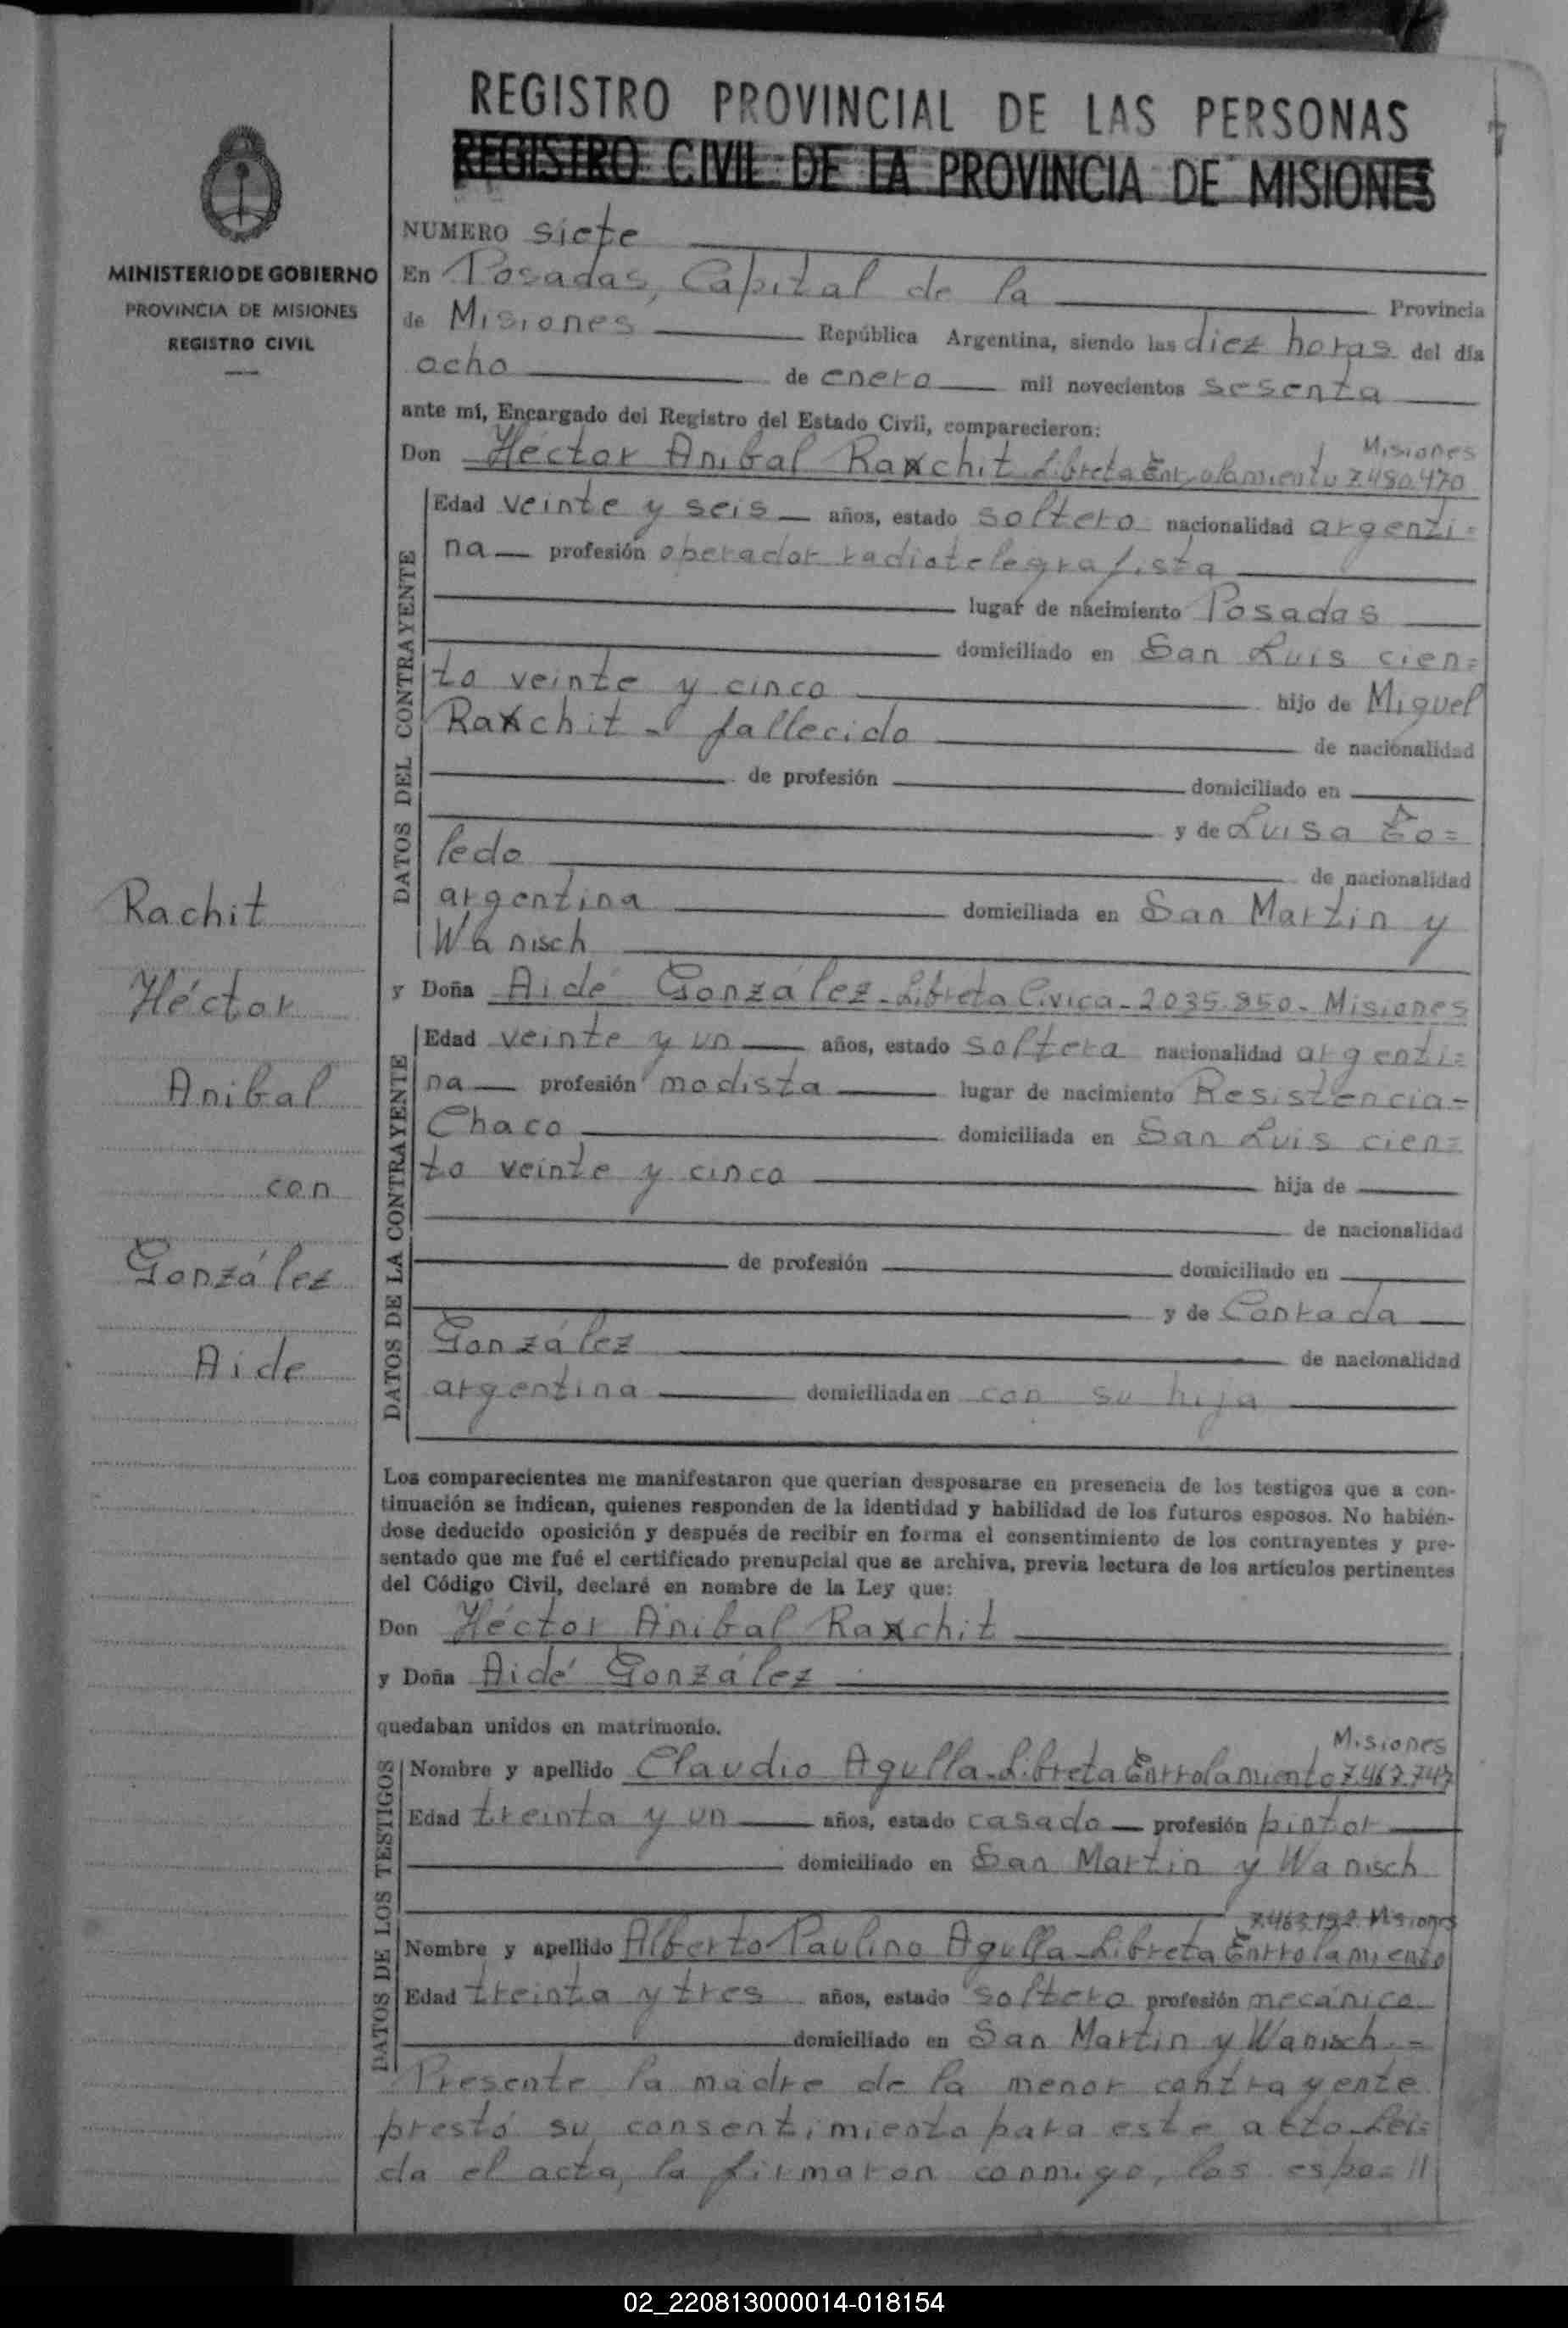 REGISTRO PROVINCIAL DE LAS PERSONAS
REGISTRO CIVIL DE LA PROVINCIA DE MISIONES
MINISTERIO DE GOBIERNO
PROVINCIA DE MISIONES
REGISTRO CIVIL
Rachit
Héctor
Anibal
con
González
Aide
NUMERO siete
En Posadas, Capital de la Provincia
de Misiones República Argentina, siendo las diez horas del día
ocho de enero mil novecientos sesenta
ante mí, Encargado del Registro del Estado Civil, comparecieron:
Misiones
Don Héctor Anibal Raxchit Libreta Enrolamiento 7.480.470
DATOS DEL CONTRAYENTE
Edad veinte y seis años, estado soltero nacionalidad argenti=
na profesión operador radiotelegrafista
lugar de nacimiento Posadas
domiciliado en San Luis cien=
to veinte y cinco hijo de Miguel
Raxchit - fallecido de nacionalidad
de profesión domiciliado en
y de Luisa To=
ledo de nacionalidad
argentina domiciliada en San Martin y
Wanisch
y Doña Aidé González - Libreta Cívica - 2.035.850 - Misiones
DATOS DE LA CONTRAYENTE
Edad veinte y un años, estado soltera nacionalidad argenti=
na profesión modista lugar de nacimiento Resistencia=
Chaco domiciliada en San Luis cien=
to veinte y cinco hija de
de nacionalidad
de profesión domiciliado en
y de Conrada
González de nacionalidad
argentina domiciliada en con su hija
Los comparecientes me manifestaron que querían desposarse en presencia de los testigos que a con-
tinuación se indican, quienes responden de la identidad y habilidad de los futuros esposos. No habién-
dose deducido oposición y después de recibir en forma el consentimiento de los contrayentes y pre-
sentado que me fué el certificado prenupcial que se archiva, previa lectura de los artículos pertinentes
del Código Civil, declaré en nombre de la Ley que:
Don Héctor Anibal Raxchit
y Doña Aidé González
quedaban unidos en matrimonio.
DATOS DE LOS TESTIGOS
Misiones
Nombre y apellido Claudio Agulla - Libreta Enrrolamiento 7.467.747
Edad treinta y un años, estado casado profesión pintor
domiciliado en San Martin y Wanisch
7.463.192. Misiones
Nombre y apellido Alberto Paulino Agulla - Libreta Enrrolamiento
Edad treinta y tres años, estado soltero profesión mecánico
domiciliado en San Martin y Wanisch.=
Presente la madre de la menor contrayente
prestó su consentimiento para este acto. Lei=
da el acta, la firmaron conmigo, los espo=//
02_220813000014-018154